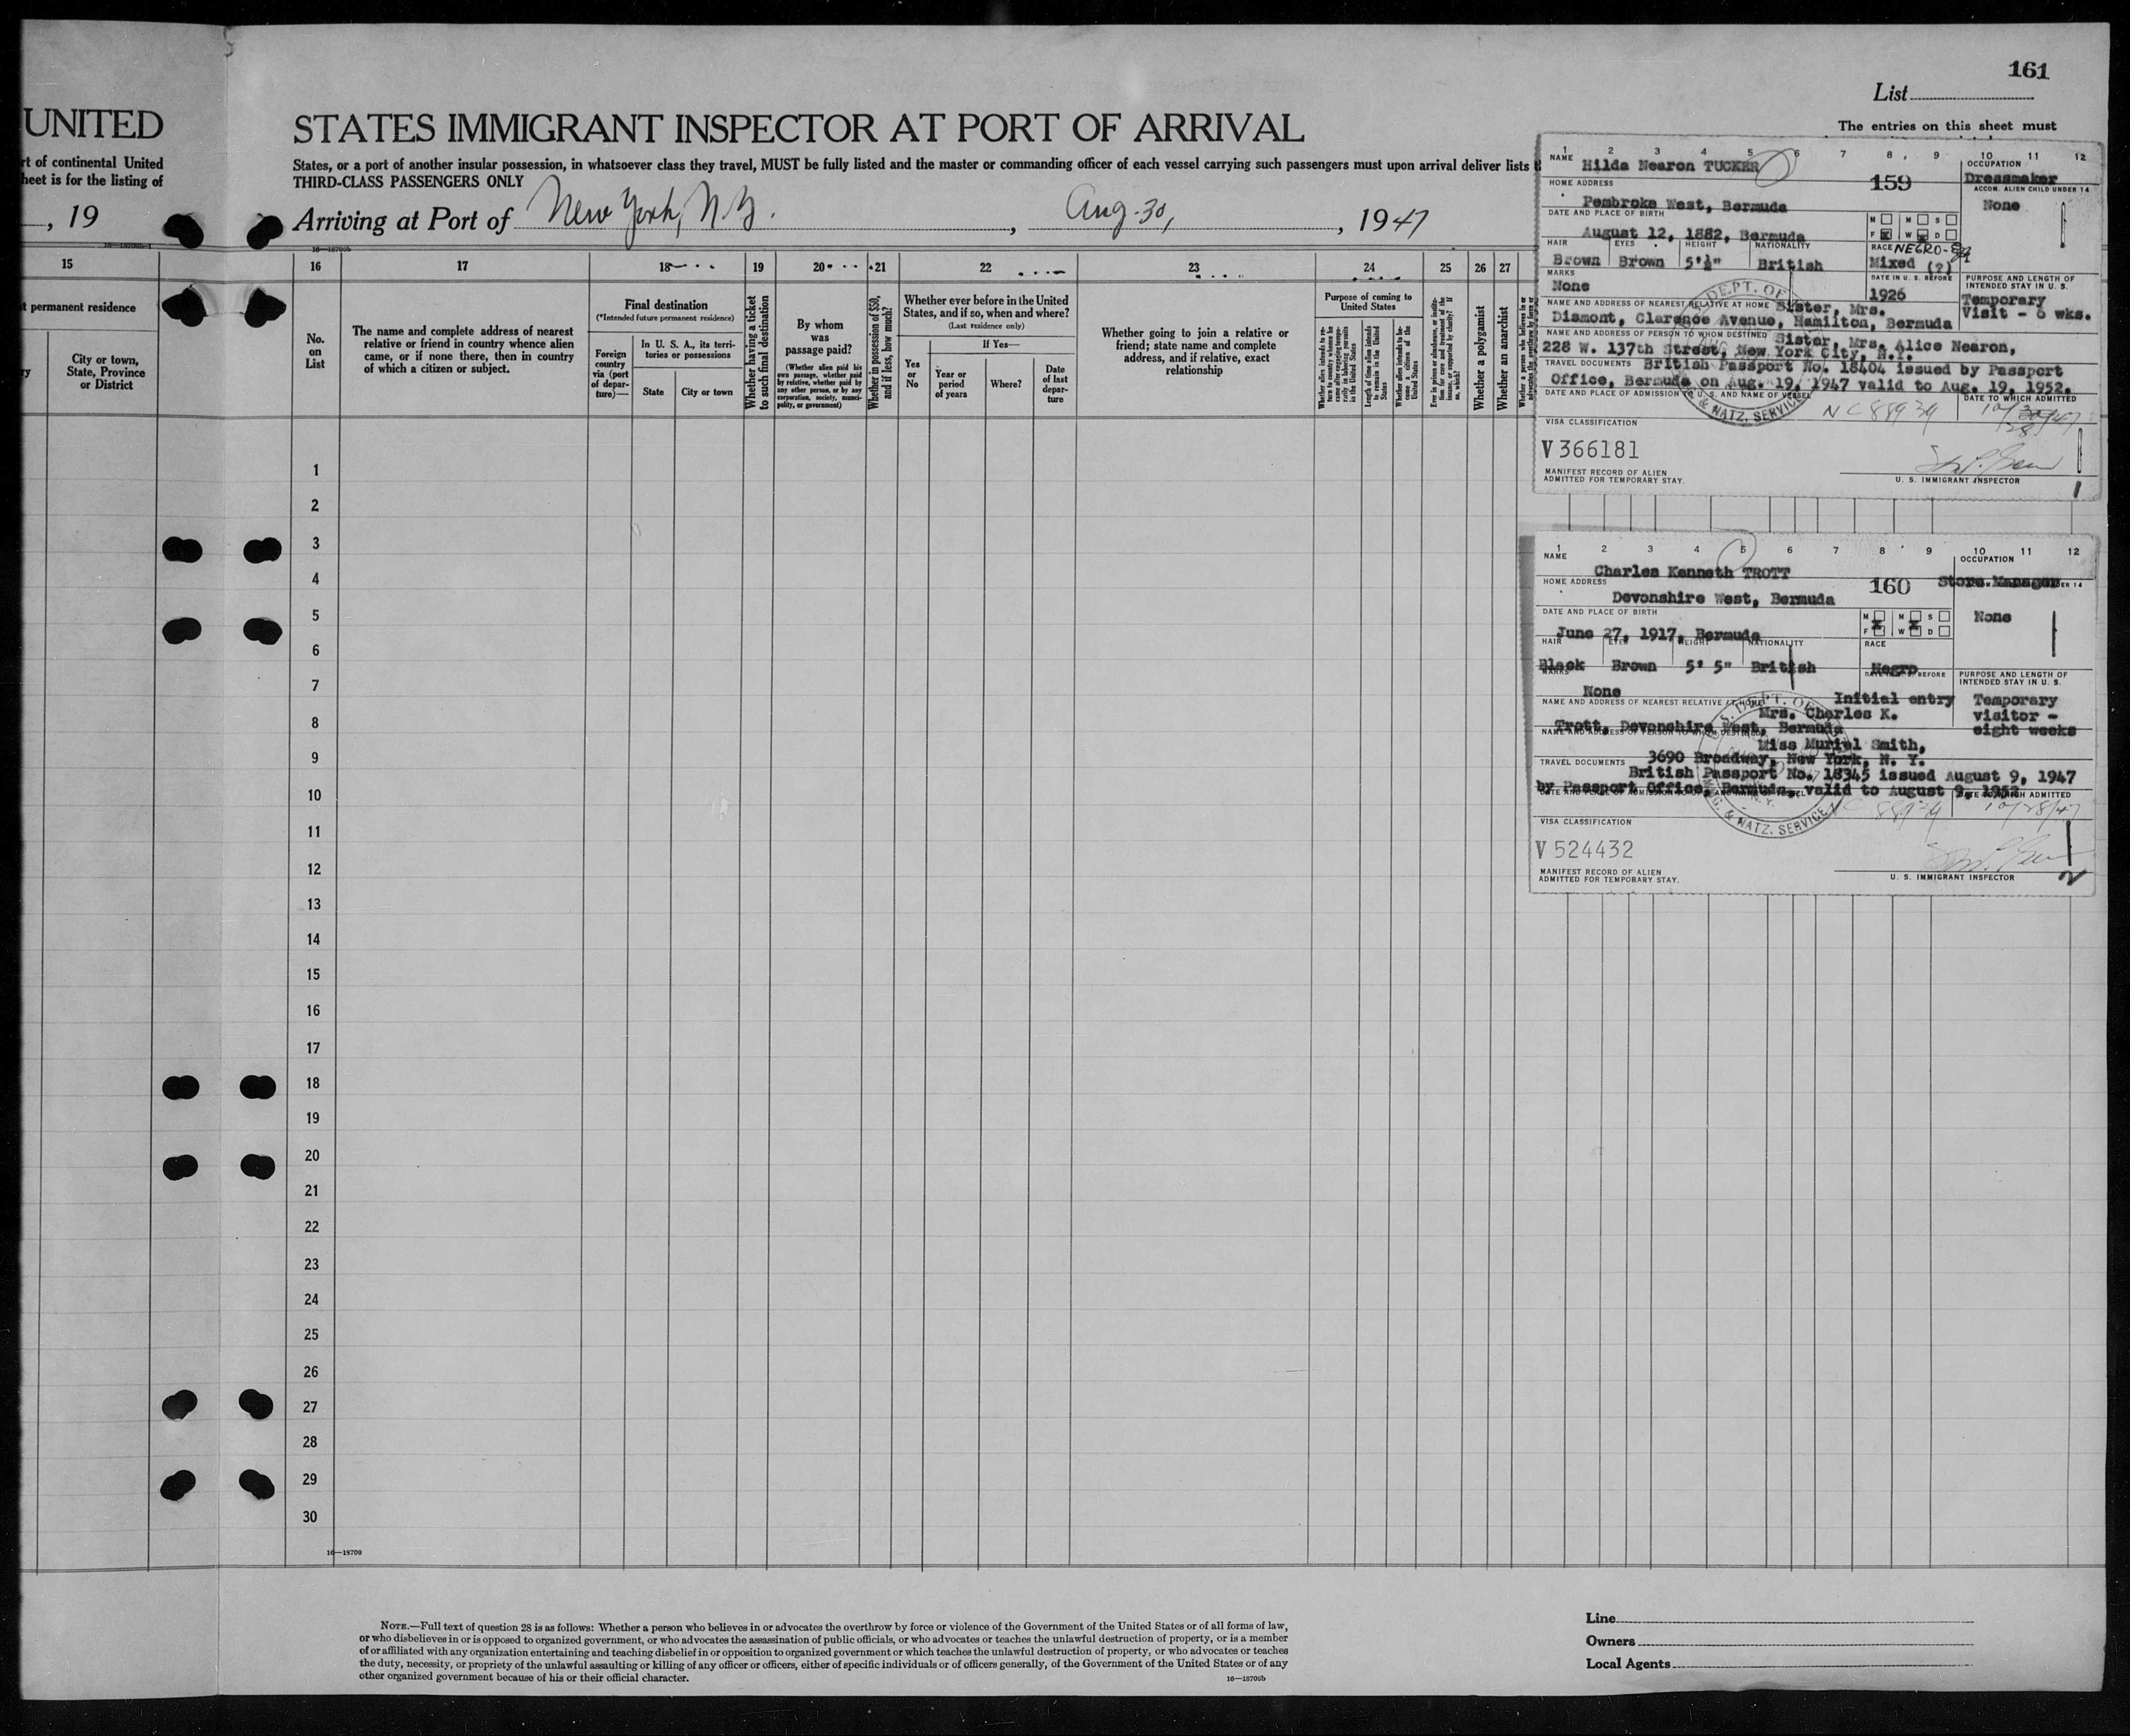 161
List
UNITED
STATES IMMIGRANT INSPECTOR AT PORT OF ARRIVAL
The entries on this sheet must
rt of continental United
heet is for the listing of
States, or a port of another insular possession, in whatsoever class they travel, MUST be fully listed and the master or commanding officer of each vessel carrying such passengers must upon arrival deliver lists
THIRD-CLASS PASSENGERS ONLY
, 19
Arriving at Port of New York, N.Y. , Aug. 30, , 1947
15
t permanent residence
City or town, State, Province or District
16
17
18
19
20
21
22
23
24
25
26
27
No. on List
The name and complete address of nearest relative or friend in country whence alien came, or if none there, then in country of which a citizen or subject.
Final destination
(*Intended future permanent residence)
Foreign country via (port of departure)—
In U. S. A., its territories or possessions
State
City or town
Whether having a ticket to such final destination
By whom was passage paid?
(Whether alien paid his own passage, whether paid by relative, whether paid by any other person, or by any corporation, society, municipality, or government)
Whether in possession of $50, and if less, how much?
Whether ever before in the United States, and if so, when and where?
(Last residence only)
Yes or No
If Yes—
Year or period of years
Where?
Date of last departure
Whether going to join a relative or friend; state name and complete address, and if relative, exact relationship
Purpose of coming to United States
Length of time alien intends to remain in the United States
Whether a polygamist
Whether an anarchist
1
2
3
4
5
6
7
8
9
10
11
12
13
14
15
16
17
18
19
20
21
22
23
24
25
26
27
28
29
30
16—18709
1 2 3 4 5 6 7 8 9 10 11 12
NAME
Hilda Nearon TUCKER
159
OCCUPATION
Dressmaker
HOME ADDRESS
ACCOM. ALIEN CHILD UNDER 14
Pembroke West, Bermuda
None
DATE AND PLACE OF BIRTH
M M S
F W D
August 12, 1882, Bermuda
HAIR EYES HEIGHT NATIONALITY RACE NEGRO
Brown Brown 5'½" British Mixed (?)
MARKS
None
DATE IN U. S. BEFORE
1926
PURPOSE AND LENGTH OF INTENDED STAY IN U. S.
Temporary
Visit - 6 wks.
NAME AND ADDRESS OF NEAREST RELATIVE AT HOME Sister, Mrs.
Dismont, Clarence Avenue, Hamilton, Bermuda
NAME AND ADDRESS OF PERSON TO WHOM DESTINED Sister, Mrs. Alice Nearon,
228 W. 137th Street, New York City, N.Y.
TRAVEL DOCUMENTS British Passport No. 18404 issued by Passport
Office, Bermuda on Aug. 19, 1947 valid to Aug. 19, 1952.
DATE AND PLACE OF ADMISSION TO U. S. AND NAME OF VESSEL
DATE TO WHICH ADMITTED
VISA CLASSIFICATION
V 366181
MANIFEST RECORD OF ALIEN
ADMITTED FOR TEMPORARY STAY.
U. S. IMMIGRANT INSPECTOR
1
1 2 3 4 5 6 7 8 9 10 11 12
NAME
OCCUPATION
Charles Kenneth TROTT
160
Store Manager
HOME ADDRESS
Devonshire West, Bermuda
DATE AND PLACE OF BIRTH
M M S
F W D
None
June 27, 1917, Bermuda
HAIR EYES HEIGHT NATIONALITY RACE
Black Brown 5' 5" British Negro
MARKS
None
PURPOSE AND LENGTH OF INTENDED STAY IN U. S.
Initial entry
Temporary
visitor -
eight weeks
NAME AND ADDRESS OF NEAREST RELATIVE AT HOME
Mrs. Charles K.
Trott, Devonshire West, Bermuda
NAME AND ADDRESS OF PERSON TO WHOM DESTINED
Miss Muriel Smith,
TRAVEL DOCUMENTS
3690 Broadway, New York, N. Y.
British Passport No. 18345 issued August 9, 1947
by Passport Office, Bermuda, valid to August 9, 1952
10/28/47
VISA CLASSIFICATION
V 524432
MANIFEST RECORD OF ALIEN
ADMITTED FOR TEMPORARY STAY.
U. S. IMMIGRANT INSPECTOR
2
NOTE.—Full text of question 28 is as follows: Whether a person who believes in or advocates the overthrow by force or violence of the Government of the United States or of all forms of law,
or who disbelieves in or is opposed to organized government, or who advocates the assassination of public officials, or who advocates or teaches the unlawful destruction of property, or is a member
of or affiliated with any organization entertaining and teaching disbelief in or opposition to organized government or which teaches the unlawful destruction of property, or who advocates or teaches
the duty, necessity, or propriety of the unlawful assaulting or killing of any officer or officers, either of specific individuals or of officers generally, of the Government of the United States or of any
other organized government because of his or their official character.
16—18709b
Line
Owners
Local Agents